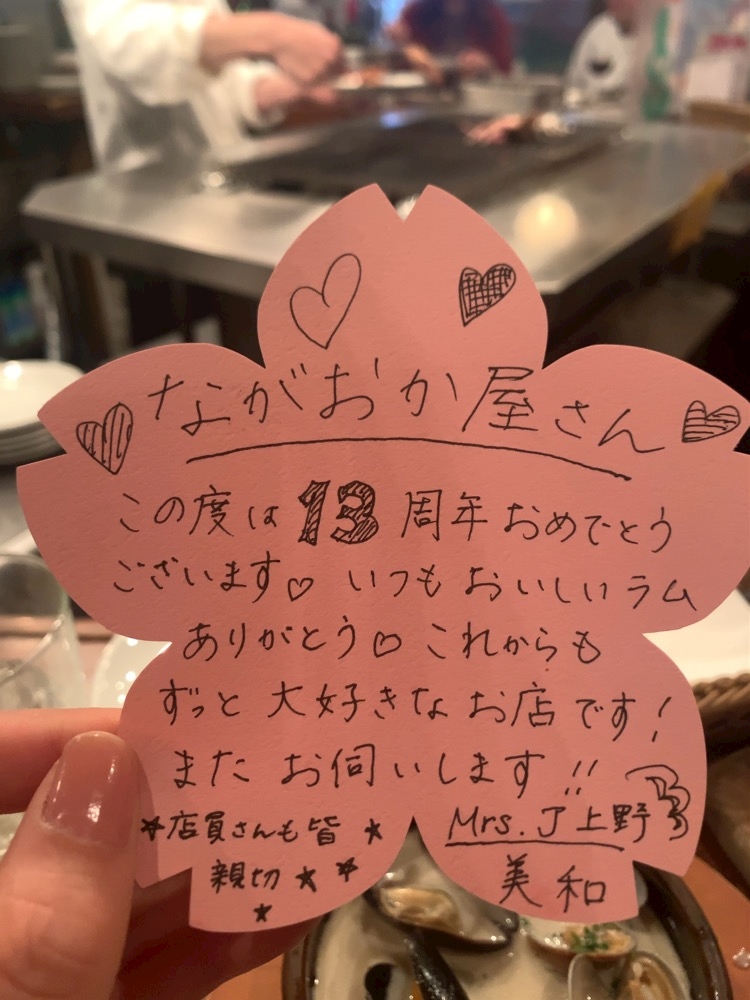 ながおか屋さん
この度は13周年おめでとう
ございます♡ いつもおいしいラム
ありがとう♡ これからも
ずっと大好きなお店です!
またお伺いします!!
★店員さんも皆★
親切★★
★
Mrs. J 上野
美和